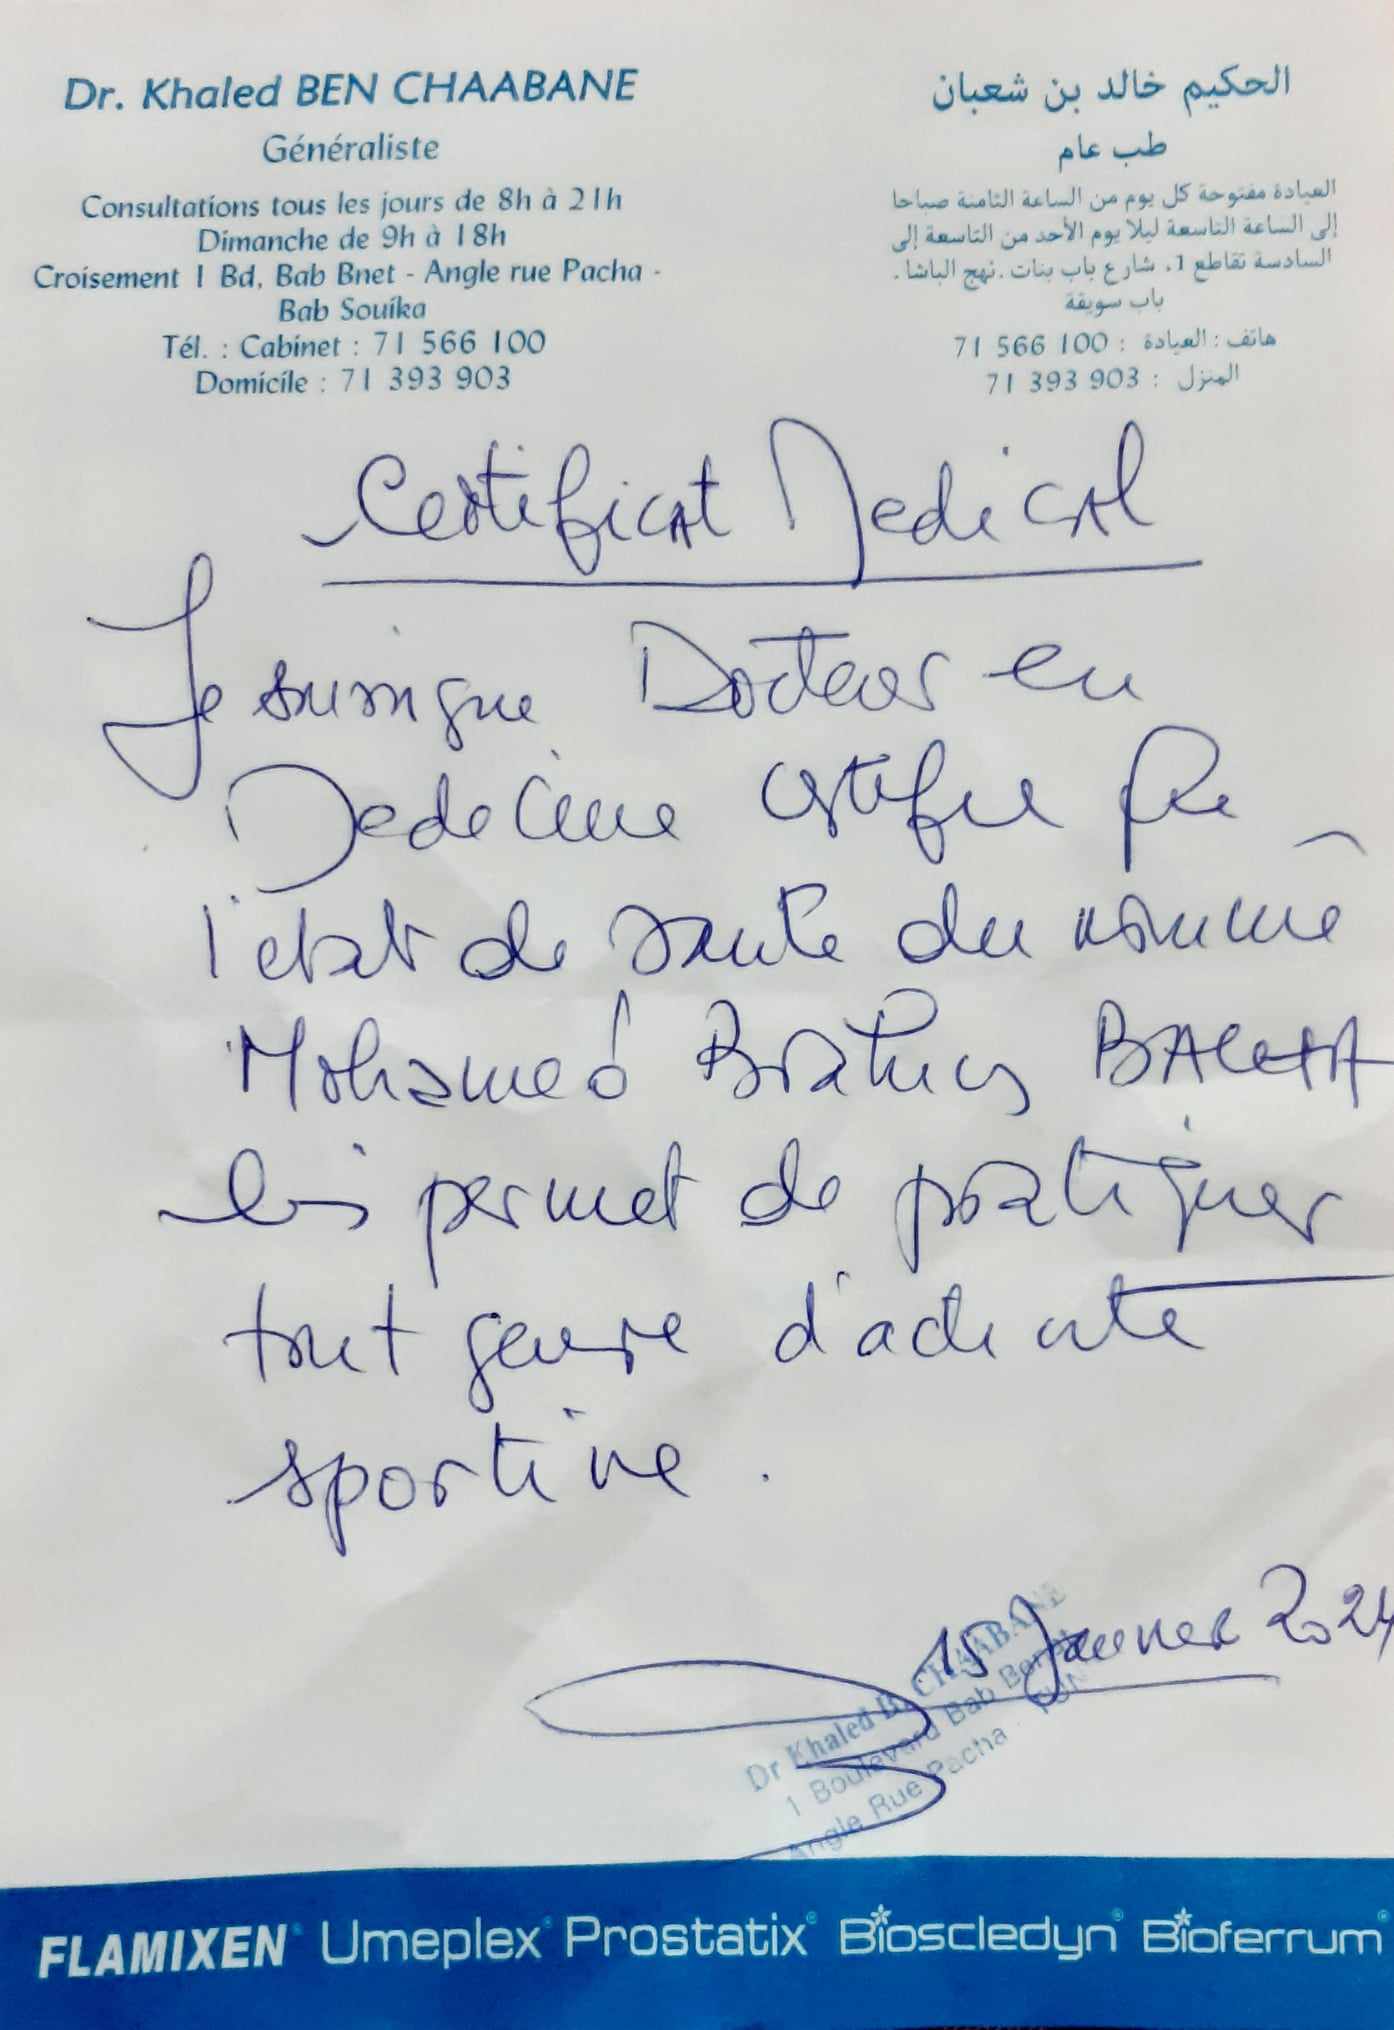 Dr. Khaled BEN CHAABANE
Généraliste
Consultations tous les jours de 8h à 21h
Dimanche de 9h à 18h
Croisement 1 Bd, Bab Bnet - Angle rue Pacha -
Bab Souika
Tél. : Cabinet : 71 566 100
Domicile : 71 393 903
الحكيم خالد بن شعبان
طب عام
العيادة مفتوحة كل يوم من الساعة الثامنة صباحا
إلى الساعة التاسعة ليلا يوم الأحد من التاسعة إلى
السادسة تقاطع 1، شارع باب بنات .نهج الباشا .
باب سويقة
هاتف : العيادة : 71 566 100
المنزل : 71 393 903
Certificat Medical
Je sousigne Docteur en
Medecine certifie que
l'etat de sante du nommé
Mohamed BACHA
lui permet de pratiquer
tout genre d'activite
sportive.
15 Janvier 2024
Dr Khaled B. CHAABANE
1 Boulevard Bab
Angle Rue Pacha
FLAMIXEN® Umeplex® Prostatix® Bioscledyn® Bioferrum®